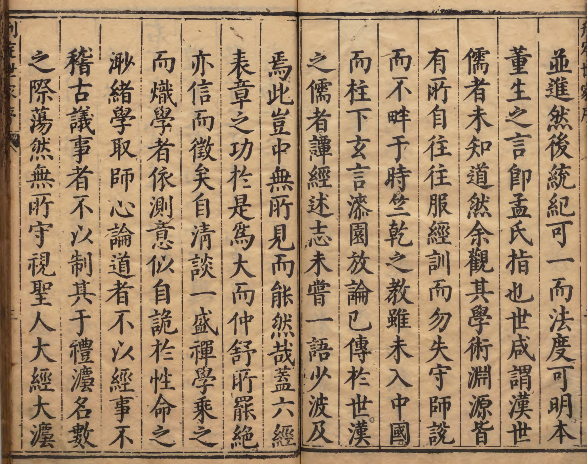 並進然後統紀可一而法度可明本
董生之言卽孟氏指也世咸謂漢世
儒者未知道然余觀其學術淵源皆
有所自往往服經訓而勿失守師說
而不畔于時竺乾之教雖未入中國
而柱下玄言漆園放論已傳於世漢
之儒者譚經述志未嘗一語少波及
焉此豈中無所見而能然哉蓋六經
表章之功於是爲大而仲舒所罷絶
亦信而徵矣自清談一盛禪學乗之
而熾學者依測意似自詭於性命之
渺緒學取師心論道者不以經事不
稽古議事者不以制其于禮灋名數
之際蕩然無所守視聖人大經大灋